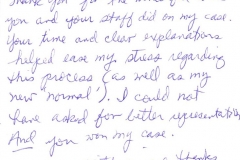 Thank you for the
you and your staff did on my case.
Your time and clear explanations
helped ease my stress regarding
this process (as well as my
new "normal"). I could not
have asked for better representation
And you won my case.
thanks